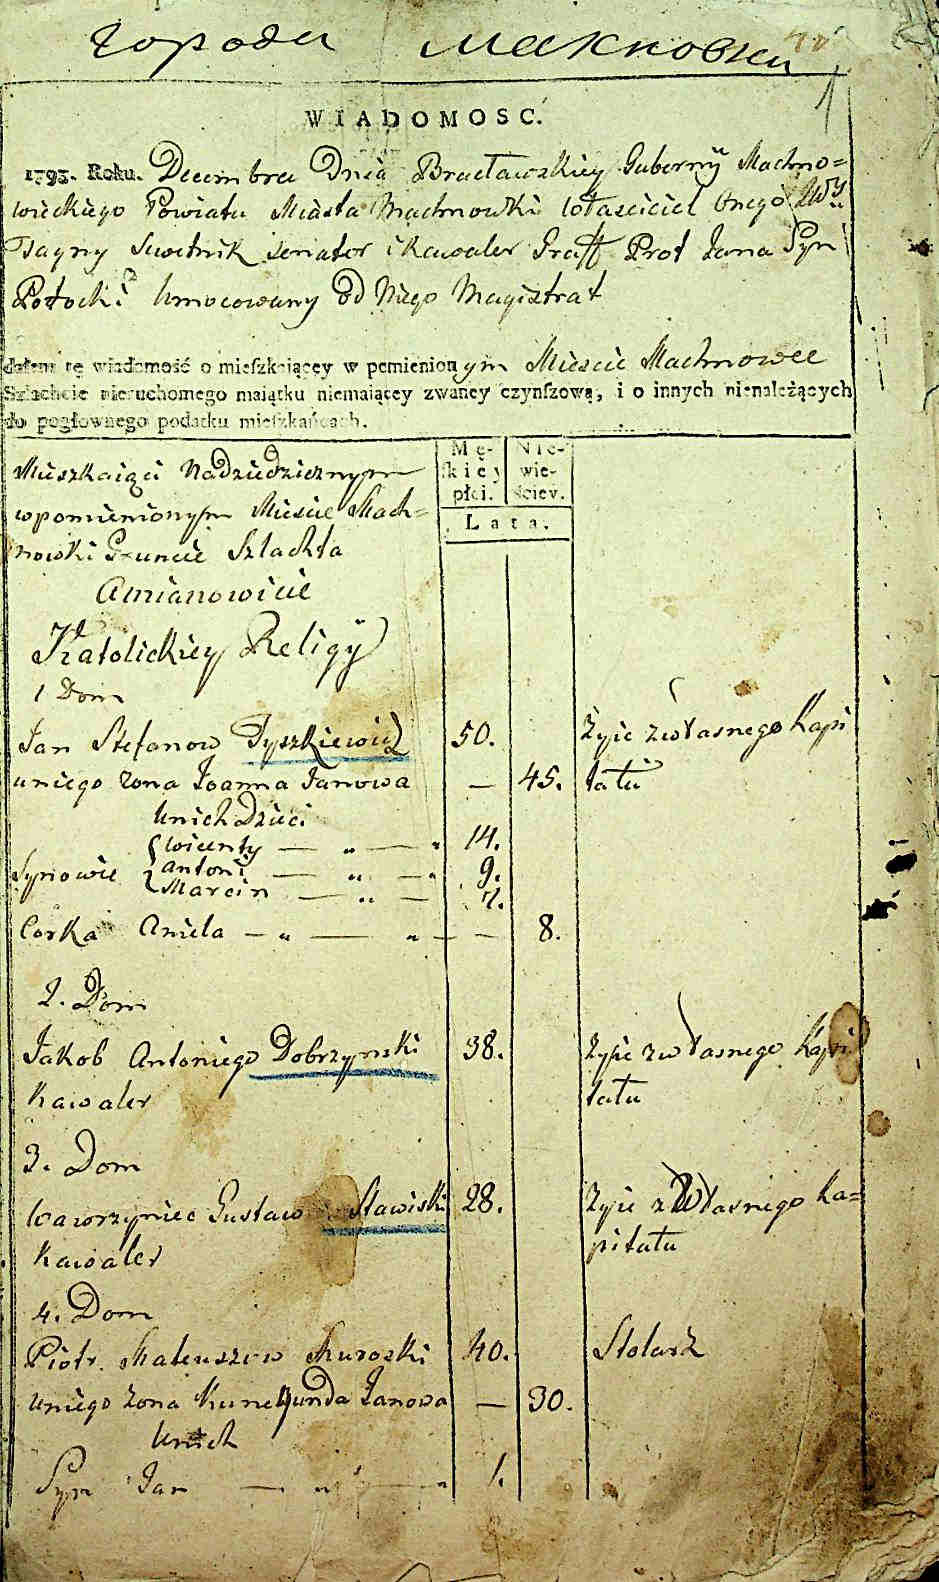 города Махновки
1
WIADOMOSĆ.
1795. Roku. Decembra Dnia Bracławskiey Gubernÿ Machno=
wieckiego Powiatu Miasta Machnowki własciciel Onego
Tayny Sowetnik Senator i kawaler Graff Prot Jana Syn
Potocki Umocowany od Niego Magistrat
daiem tę wiadomość o mieſzkaiącey w pomienionym Miescie Machnowce
Szlachcie nieruchomego maiątku niemaiącey zwaney czynſzową, i o innych nienależących
do pogłownego podatku mieſzkańcach.
Mę-
ſkiey
płci.
Nie-
wie-
ściey.
Lata.
Mieszkaiąci Nadziedzicznym
wpomienionym Miescie Mach=
nowki Gruncie Szlachta
Amianowicie
Katolickiey Religÿ
1 Dom
Jan Stefanow Tyszkiewicz 50. Zyie zwłasnego Kapi
uniego zona Joanna Janowa — 45. tału
Unich Dzieci
Synowie
Wicenty — „ — „ 14.
Antoni — „ — „ 9.
Marcin — „ — 7.
Corka Aniela — „ — „ — — 8.
2. Dom
Jakob Antoniego Dobrzynski 38. Zyie zwłasnego Kapi
Kawaler tału
3. Dom
Wawrzyniec Gustaw Stawiski 28. Zyie zWłasnego Ka=
Kawaler pitału
4. Dom
Piotr Mateuszow Muroski 40. Stolarz
Uniego zona Kunegunda Janowa — 30.
Unich
Syn Jan — „ — „ 1.